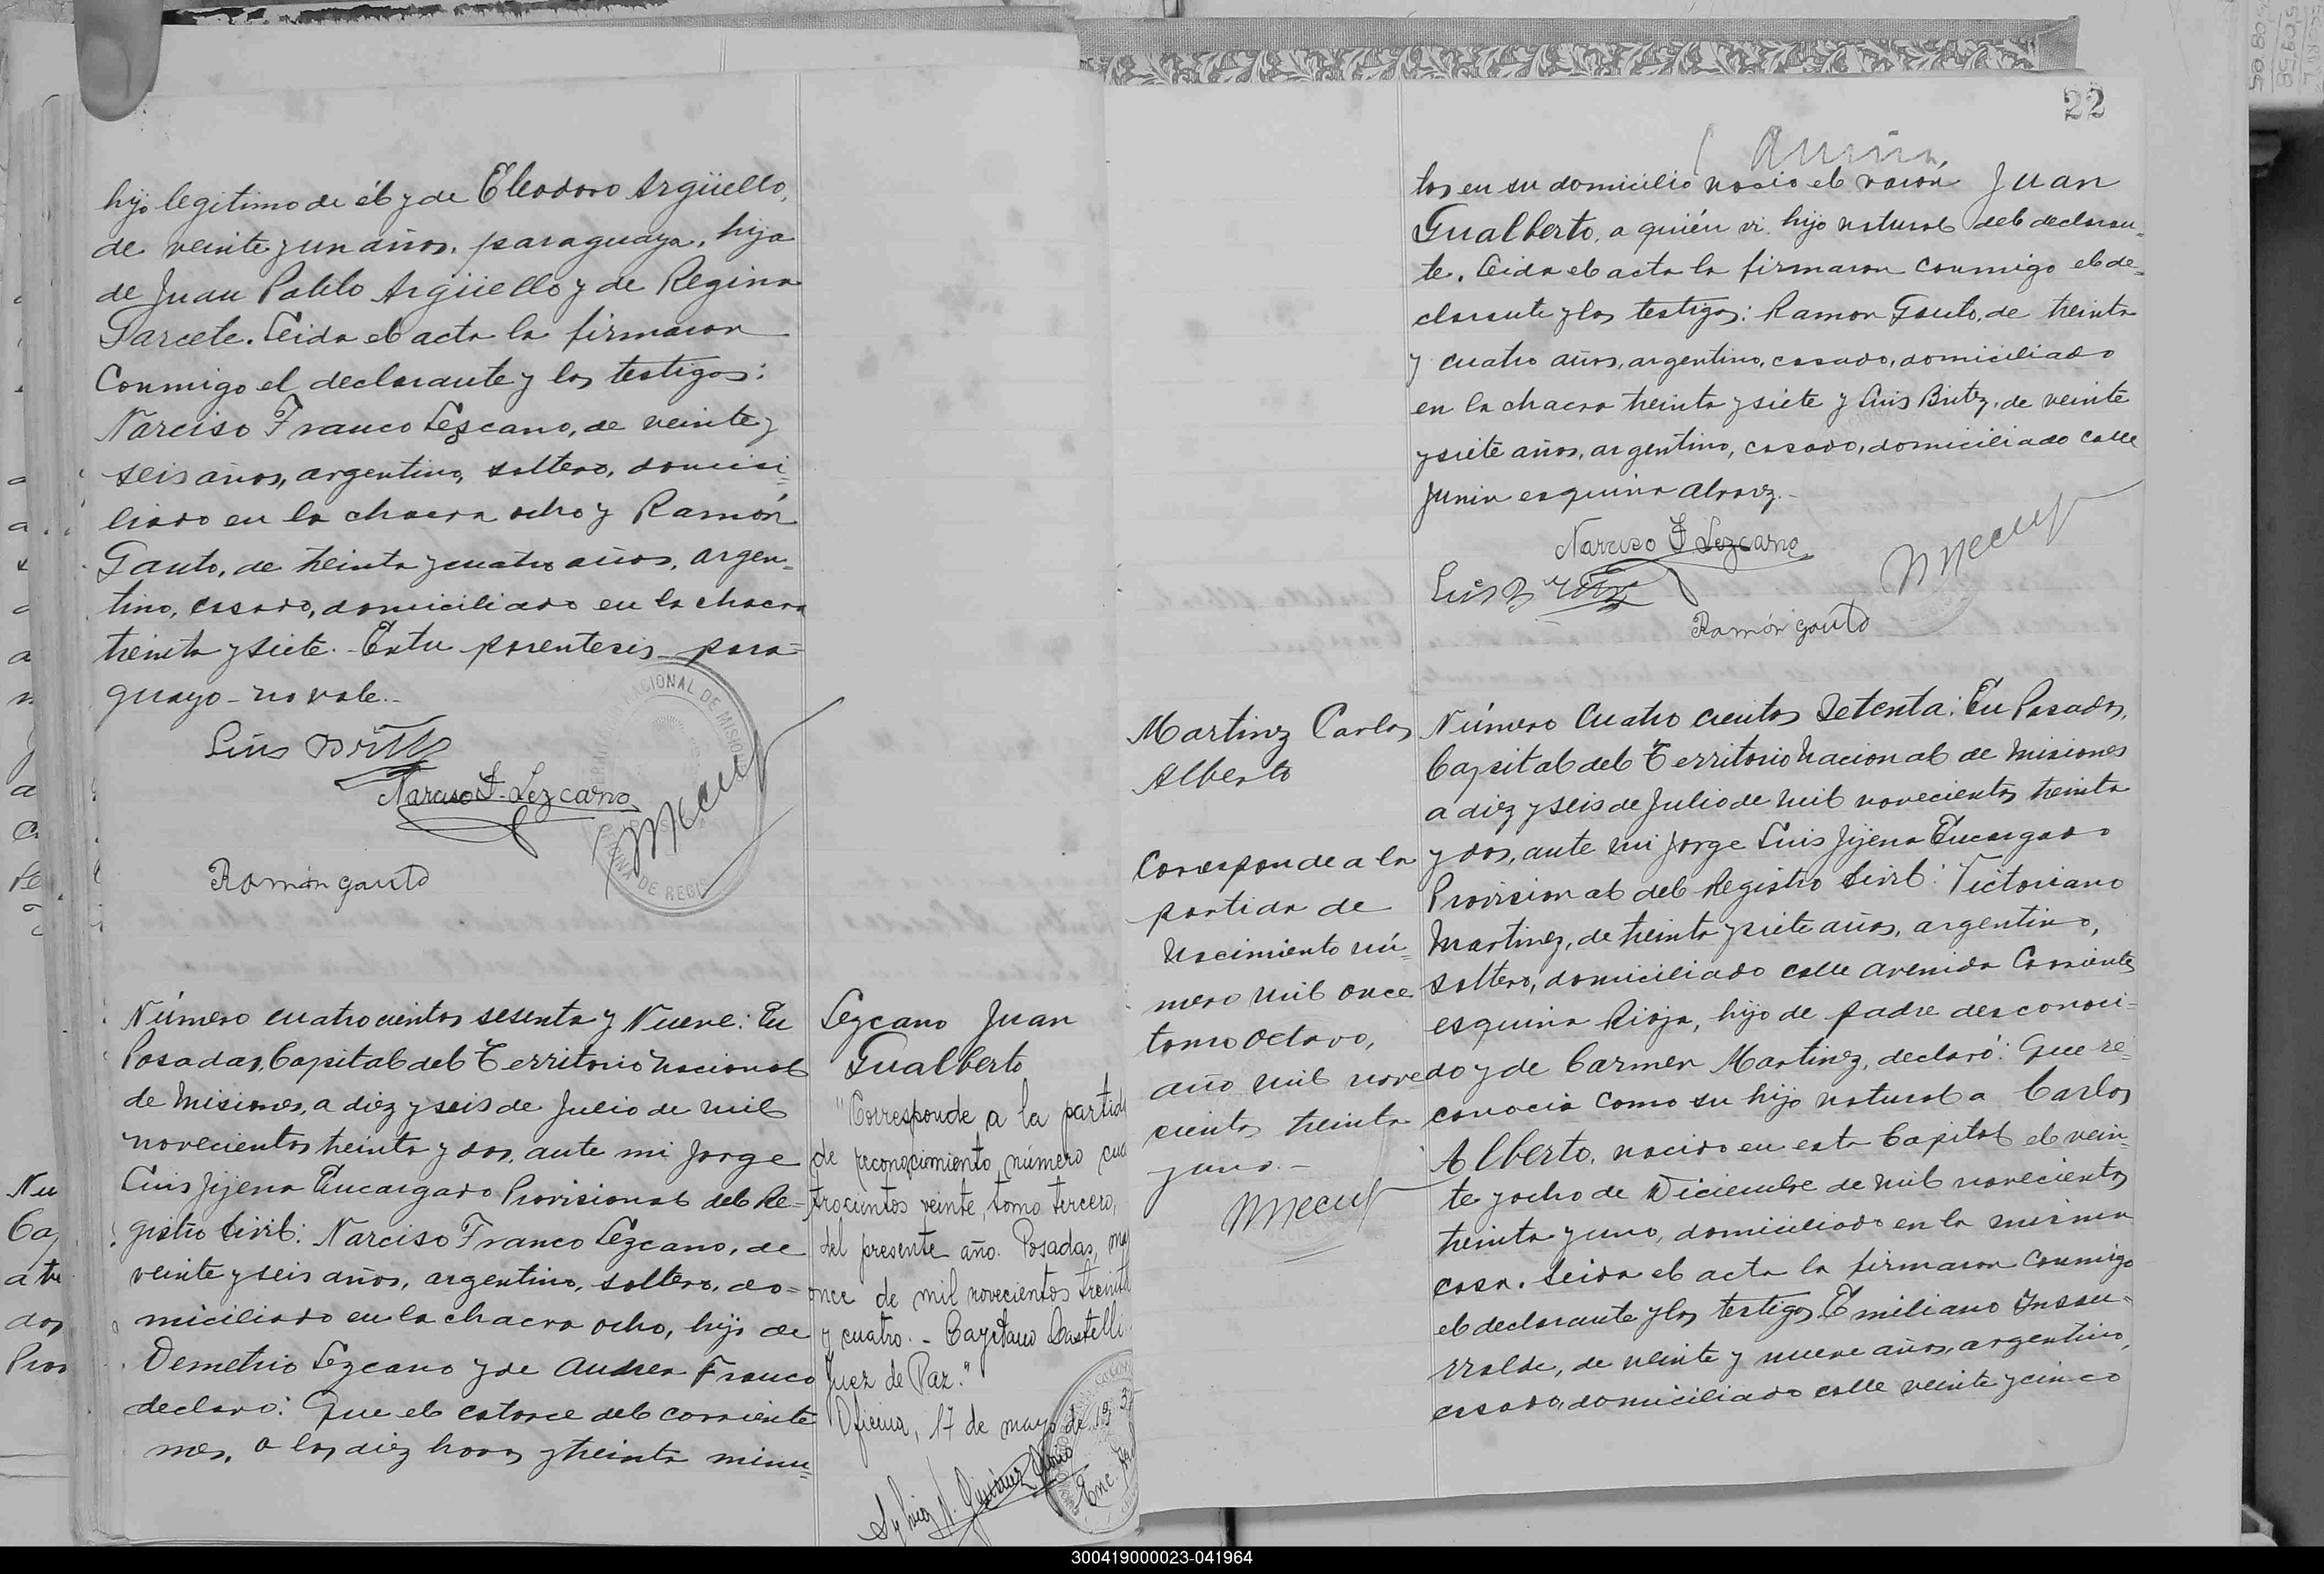 hijo legitimo de él y de Eleodoro Argüello,
de veinte y un años, paraguaya, hija
de Juan Pablo Argüello y de Regina
Garcete. Leida el acta la firmaron
Conmigo el declarante y los testigos:
Narciso Franco Lezcano, de veinte y
seis años, argentino, soltero, domici=
liado en la chacra ocho y Ramón
Gauto, de treinta y cuatro años, argen=
tino, casado, domiciliado en la chacra
treinta y siete.- Entre parentesis - para=
guayo - no vale.-
Luis Britez
Narciso F. Lezcano
Ramón gauto
Número cuatrocientos sesenta y Nueve: En
Posadas, Capital del Territorio Nacional
de Misiones, a diez y seis de Julio de mil
novecientos treinta y dos, ante mi Jorge
Luis Jijena Encargado Provisional del Re=
gistro Civil: Narciso Franco Lezcano, de
veinte y seis años, argentino, soltero, do=
miciliado en la chacra ocho, hijo de
Demetrio Lezcano y de Andrea Franco
declaró: Que el catorce del corriente
mes, a las diez horas y treinta minu=
Lezcano Juan
Gualberto
"Corresponde a la partid
de reconocimiento número cua
trocientos veinte, tomo tercero,
del presente año. Posadas, ma
once de mil novecientos treinta
y cuatro. - Cayetano Castelli.
Juez de Paz."
Oficina, 17 de mayo de 193
22
tos en su domicilio nació el varón Juan
Gualberto, a quién vi, hijo natural del declaran=
te. Leida el acta la firmaron conmigo el de=
clarante y los testigos: Ramon Gauto, de treinta
y cuatro años, argentino, casado, domiciliado
en la chacra treinta y siete y Luis Britez, de veinte
y siete años, argentino, casado, domiciliado calle
Junin esquina Alvarez.-
Narciso F Lezcano
Luis Britez
Ramón gauto
Martinez Carlos
Alberto
Corresponde a la
partida de
Nacimiento nú=
mero mil once
tomo octavo,
año mil nove
cientos treinta
y uno.-
Número Cuatro cientos Setenta: En Posadas,
Capital del Territorio Nacional de Misiones
a diez y seis de Julio de mil novecientos treinta
y dos, ante mi Jorge Luis Jijena Encargado
Provisional del Registro Civil: Victoriano
Martinez, de treinta y siete años, argentino,
soltero, domiciliado calle avenida Corrientes
esquina Rioja, hijo de padre desconoci=
do y de Carmen Martinez, declaró: Que re=
conocia como su hijo natural a Carlos
Alberto, nacido en esta Capital el vein=
te y ocho de Diciembre de mil novecientos
treinta y uno, domiciliado en la misma
casa. Leida el acta la firmaron conmigo
el declarante y los testigos Emiliano Insau=
rralde, de veinte y nueve años, argentino,
casado, domiciliado calle veinte y cinco
300419000023-041964